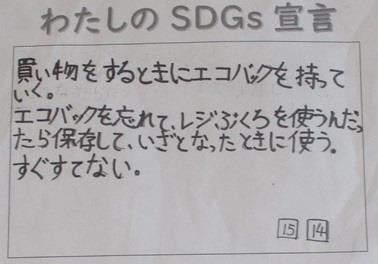 わたしの SDGs 宣言
買い物をするときにエコバックを持って
いく。
エコバックを忘れて、レジぶくろを使うんだっ
たら保存して、いざとなったときに使う。
すぐすてない。
15 14